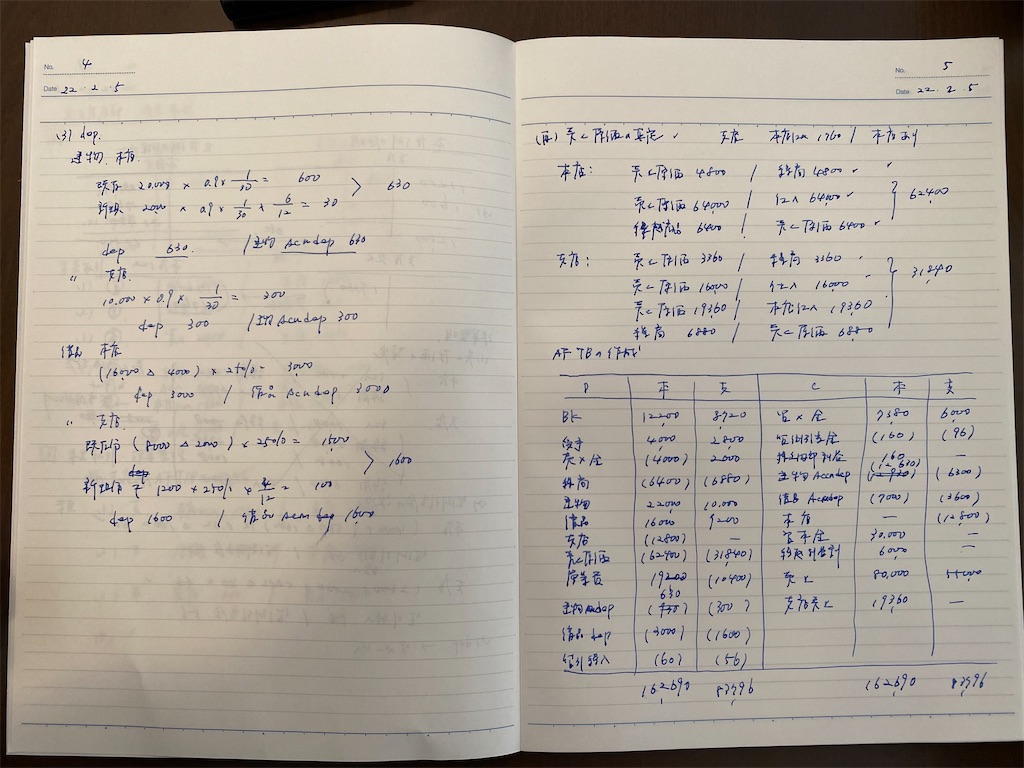 No. 4
Date 22・2・5
(3) dep.
建物. 本店
既存 20.000 × 0.9 × 1/30 = 600
新規 2000 × 0.9 × 1/30 × 6/12 = 30
> 630
dep 630. / 建物 Acmdep 630
〃 支店.
10.000 × 0.9 × 1/30 = 300
dep 300 / 建物 Acmdep 300
備品 本店
(16000 △ 4000) × 25% = 3000
dep 3000 / 備品 Acmdep 3000
〃 支店.
既存分 (8000 △ 2000) × 25% = 1500
新規分 1200 × 25% × 4/12 = 100
> 1600
dep 1600 / 備品 Acmdep 1600
No. 5
Date 22・2・5
売上原価の算定 支店 本店仕入 1760 / 本店
本店: 売上原価 4800 / 繰商 4800
売上原価 64000 / 仕入 64000
6400 / 売上原価 6400
} 62400
支店: 売上原価 3360 / 繰商 3360
売上原価 16000 / 仕入 16000
売上原価 19360 / 本店仕入 19360
繰商 6880 / 売上原価 6880
} 31840
AF TBの作成
D 本 支 C 本 支
BK 12200 8720 買×金 7380 6000
受手 4000 2800 貸倒引当金 (160) (96)
売×金 (4000) 2000 160 —
繰商 (6400) (6880) 建物 Acmdep (12,630) (6300)
建物 22000 10.000 備品 Acmdep (7000) (3600)
備品 16000 9200 本店 — (12800)
支店 (12800) — 資本金 30.000 —
売上原価 (62400) (31840) 6000 —
営業費 19200 (10400) 売上 80,000 55000
建物 dep (630) (300) 支店売上 19360 —
備品 dep (3000) (1600)
貸引繰入 (60) (56)
162690 83796 162690 83796